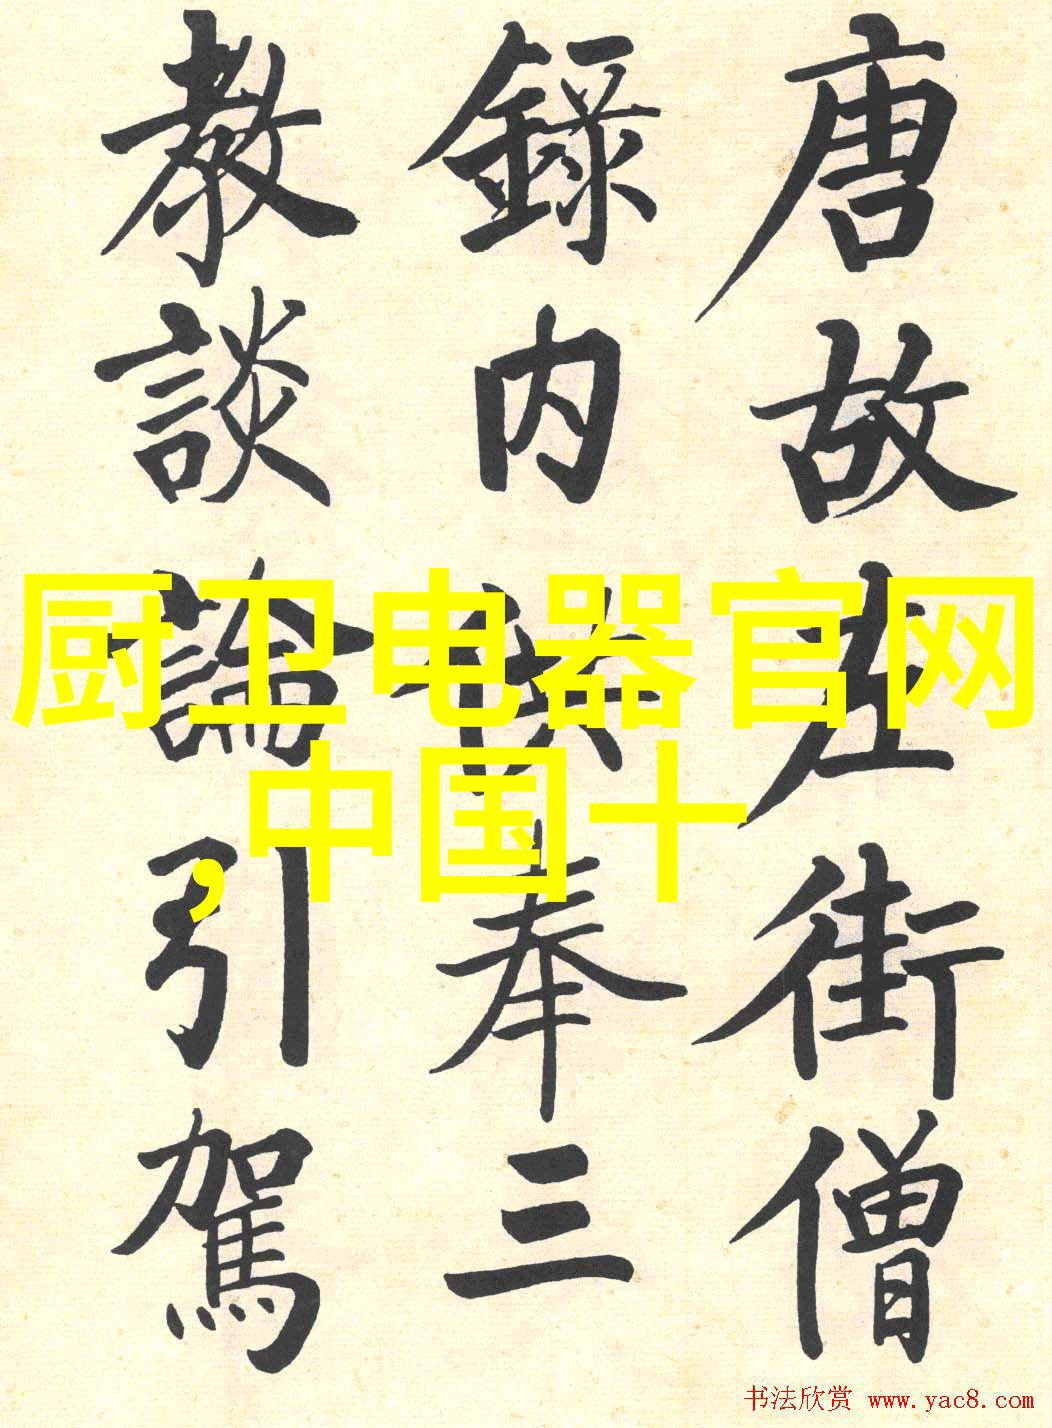 唐故左街僧
錄内供奉三
教談論引駕
厨卫电器官网
，中国十
书法欣赏 www.yac8.com